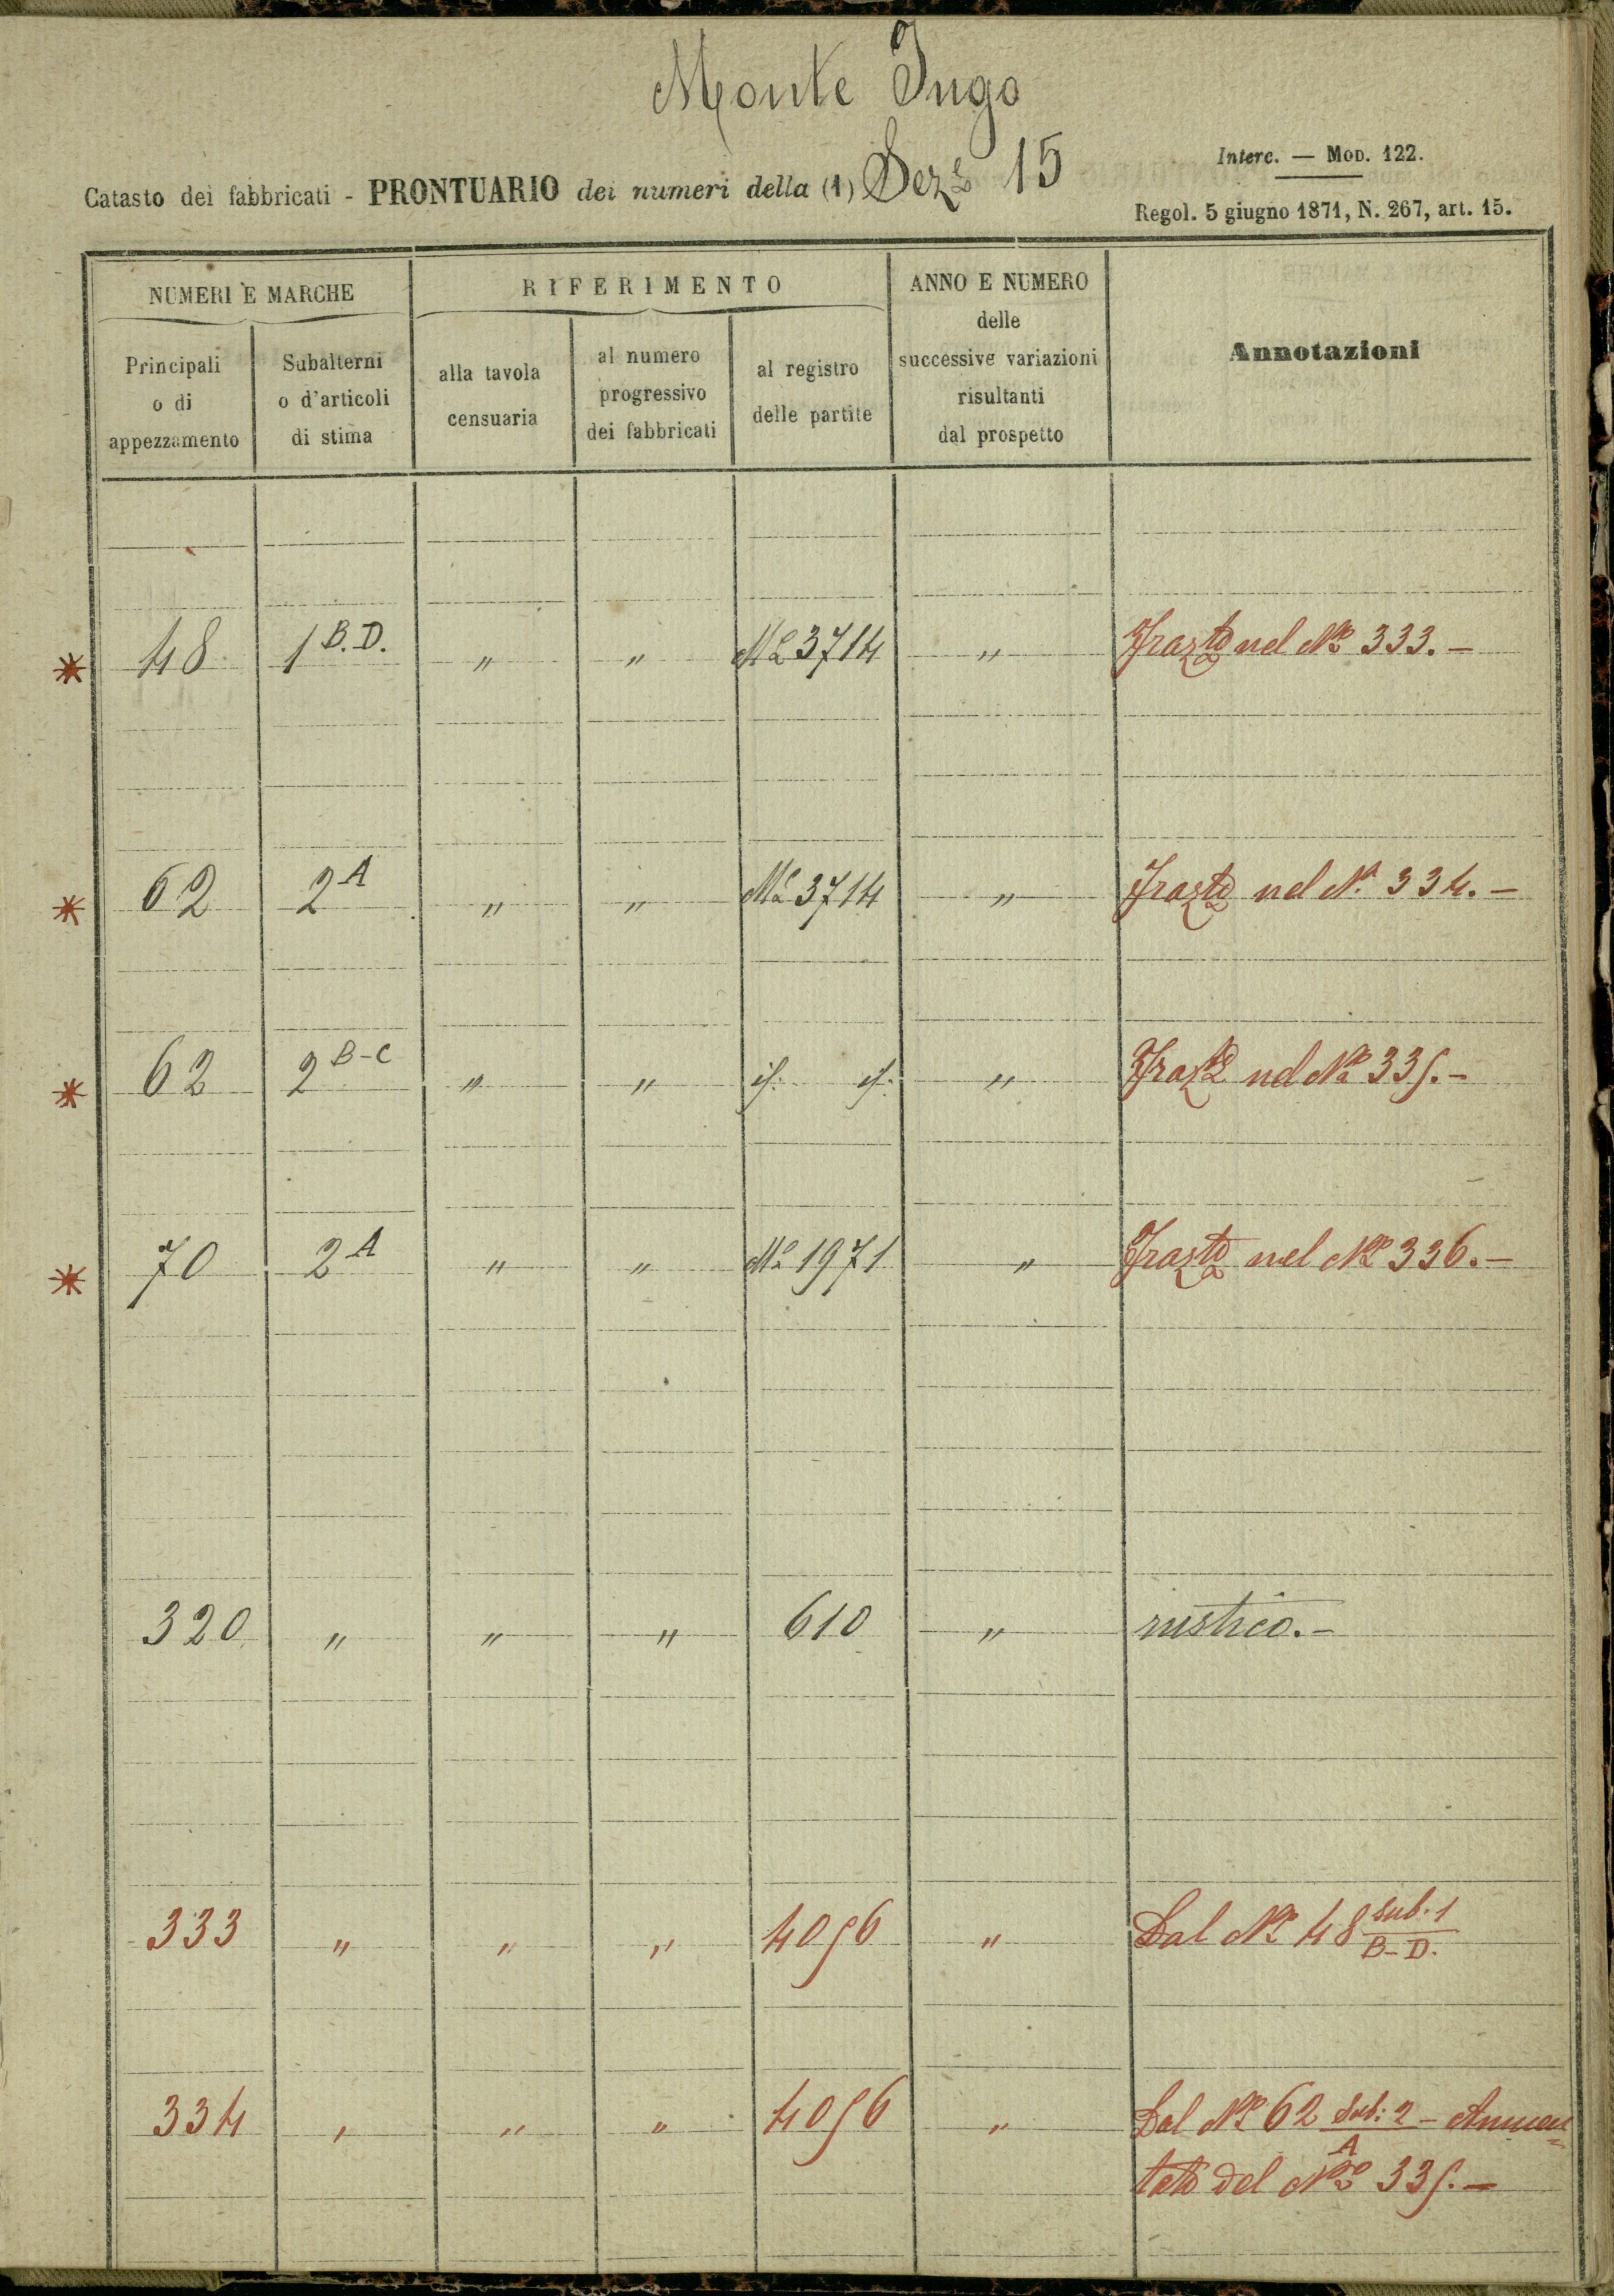 Monte Iugo
Interc. — MOD. 122.
Catasto dei fabbricati - PRONTUARIO dei numeri della (1) Sezᵉ 15
Regol. 5 giugno 1871, N. 267, art. 15.
NUMERI E MARCHE
RIFERIMENTO
ANNO E NUMERO
delle
successive variazioni
risultanti
dal prospetto
Annotazioni
Principali
o di
appezzamento
Subalterni
o d'articoli
di stima
alla tavola
censuaria
al numero
progressivo
dei fabbricati
al registro
delle partite
* 48 1 B.D. " " 3714 " nel Nº 333. –
* 62 2 A " " 3714 " nel Nº 334. –
* 62 2 B-C " " " nel Nº 335. –
* 70 2 A " " 1971 " nel Nº 336. –
320 " " " 610 " rustico. –
333 " " " 4056 " Dal Nº 48 sub. 1
B-D.
334 " " " 4056 " Dal Nº 62 Sub: 2 – Aumen
A
tato del Nº 335. –